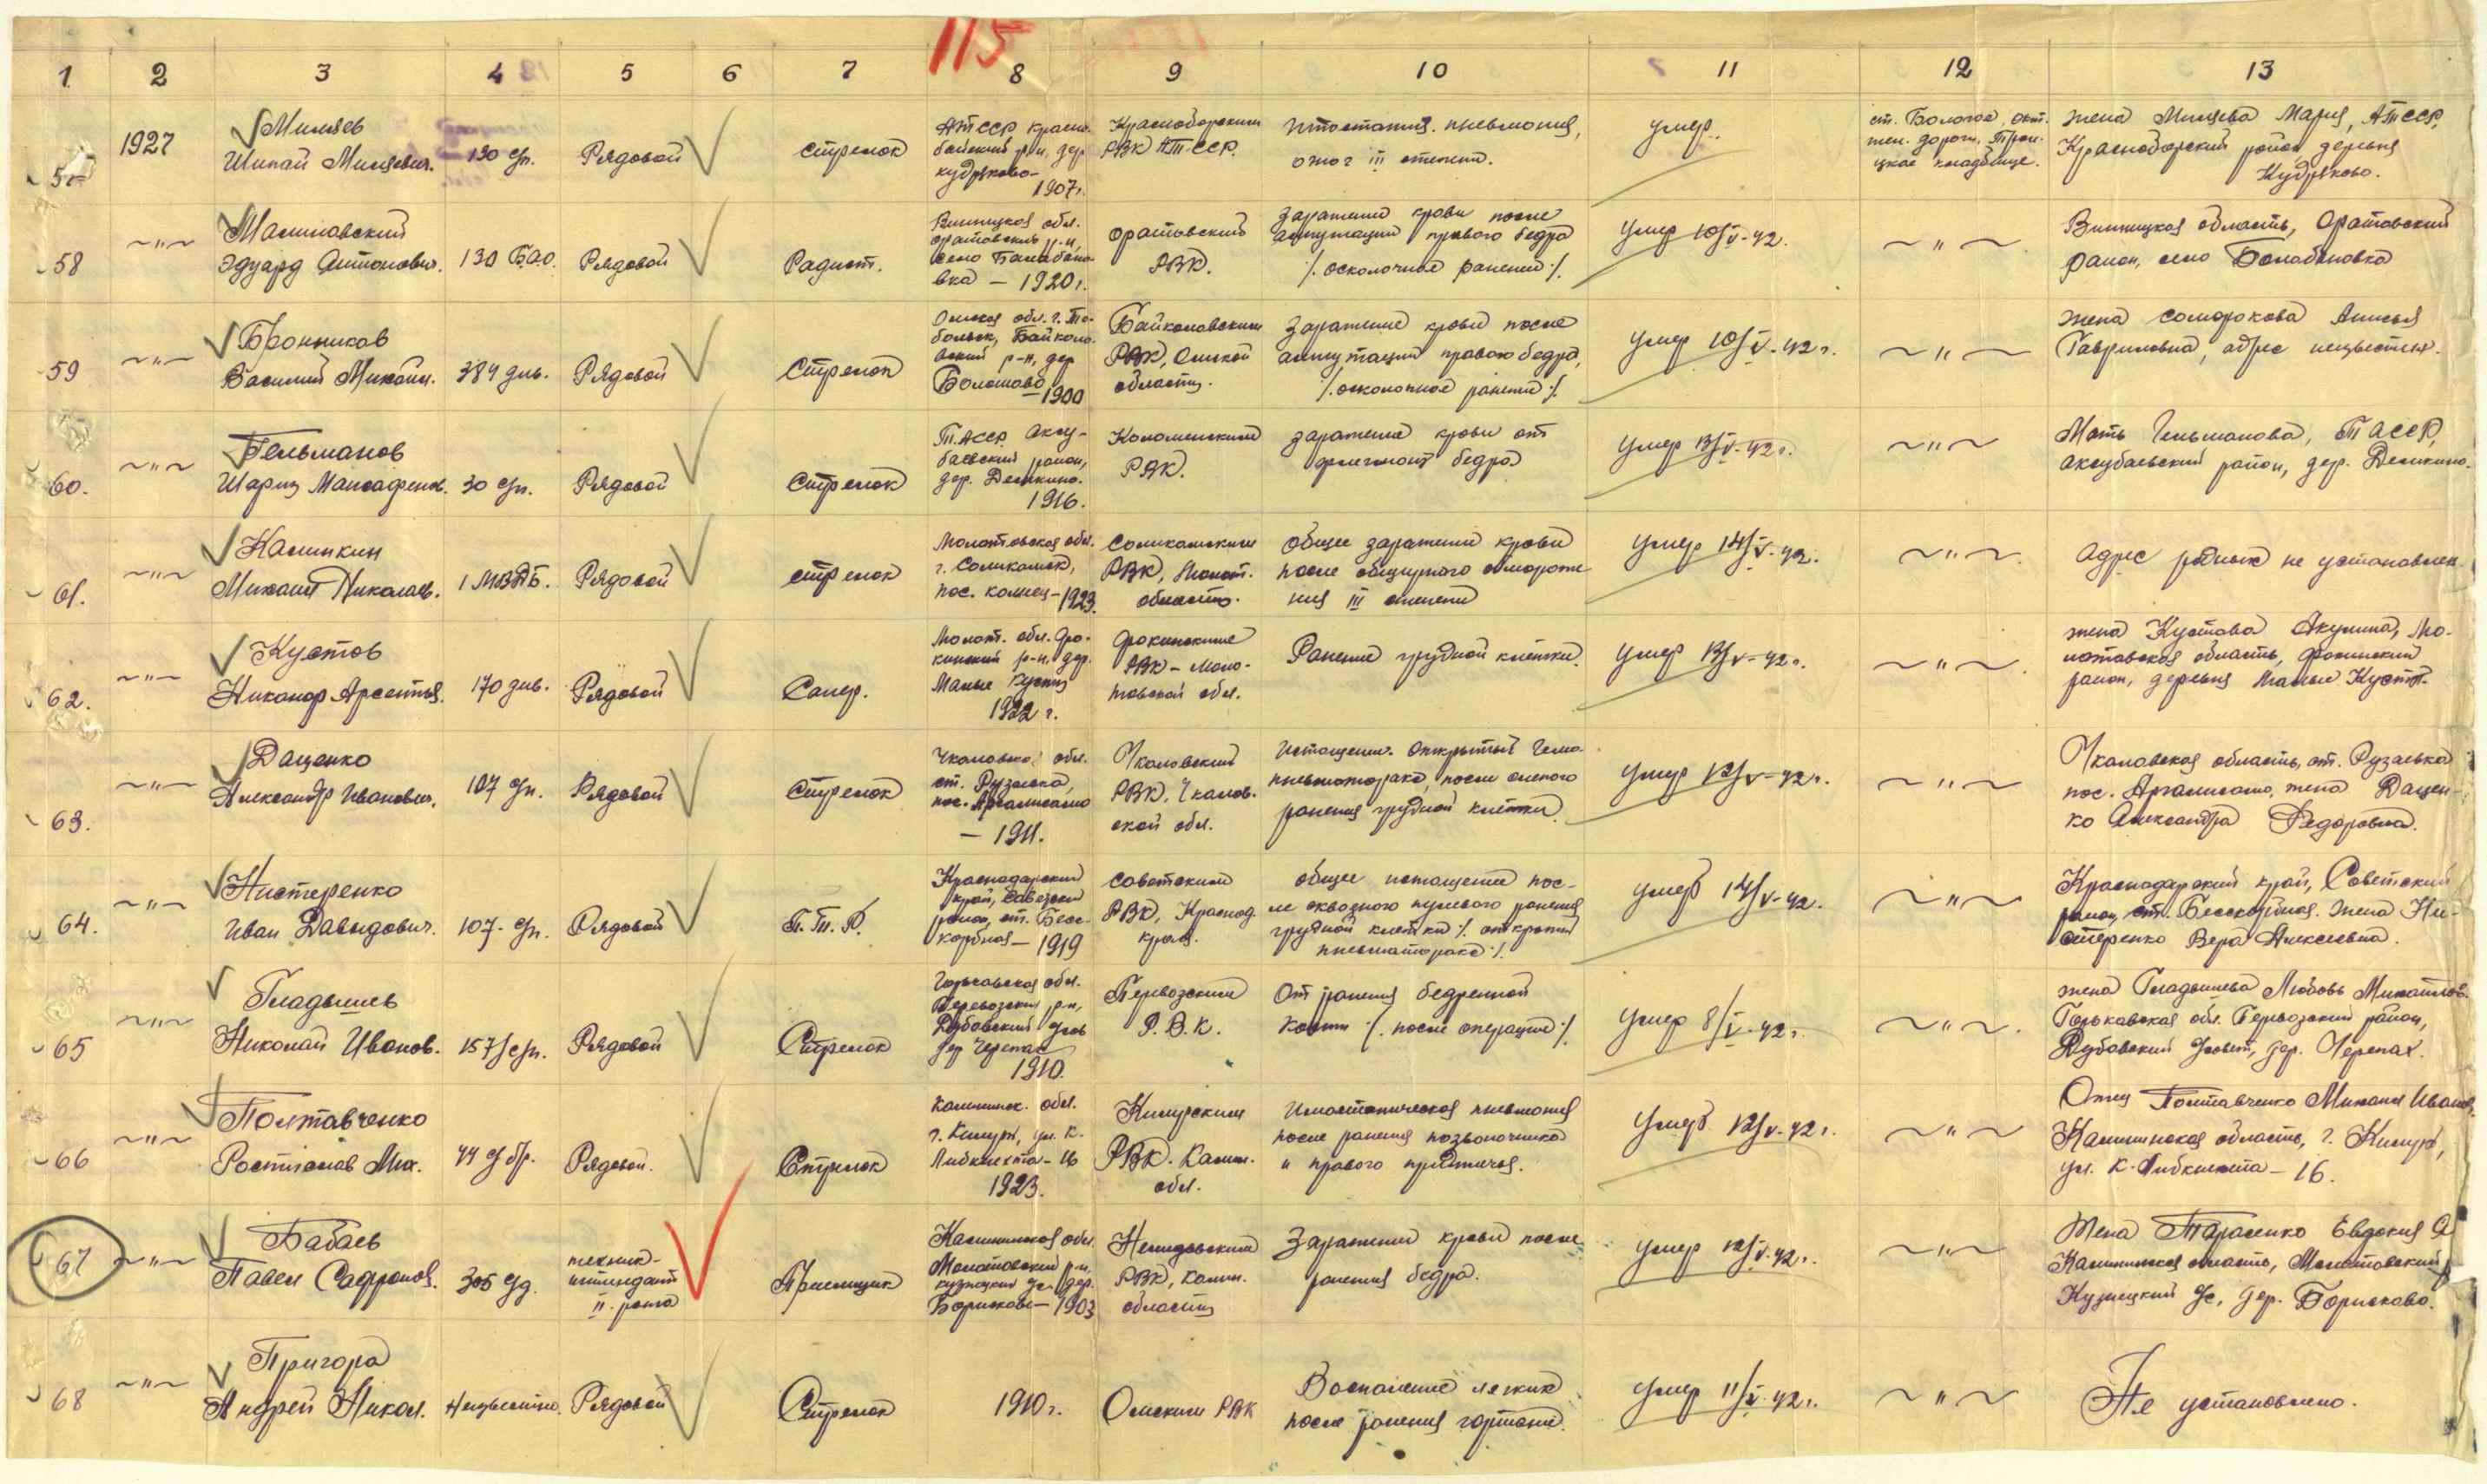 115
1 2 3 4 5 6 7 8 9 10 11 12 13
1927
Шипай
130 сп.
Рядовой
стрелок
АТССР красно-
борский р-н, дер
кудряково-
1907г.
Красноборским
РВК АТССР.
пневмония,
ожог III степени.
умер.
ст. Бологое, окт.
жел. дороги, Трои-
цкое кладбище.
жена Мария, АТССР,
Красноборский район деревня
Кудряково.
58
~"~
Малиновский
Эдуард Антонович.
130 БАО.
Рядовой
Радист.
Винницкая обл.
оратовский р-н,
село Балабано
вка - 1920г.
оратовский
РВК.
Заражение крови после
ампутации правого бедра
/. осколочное ранение /.
Умер 10/V-42.
~"~
Винницкая область, Оратовский
район, село Балабановка
59
~"~
Бронников
Василий Михайл.
384 див.
Рядовой
Стрелок
Омская обл. г. То-
больск, Байкало-
вский р-н, дер
1900
Байкаловским
РВК, Омской
области.
Заражение крови после
ампутации правого бедра,
/. осколочное ранение /.
Умер 10/V-42г.
~"~
жена
Гавриловна, адрес неизвестен.
60.
~"~
Гельманов
Шариз
30 сп.
Рядовой
Стрелок
Т.АССР. Аксу-
баевский район,
дер. Демкино.
1916.
Коломенским
РВК.
заражение крови от
флегмоны бедра
Умер 13/V-42г.
~"~
Мать Гельманова, ТАССР,
аксубаевский район, дер. Демкино.
61.
~"~
Калинкин
Михаил Николаев.
Рядовой
стрелок
Молотовская обл.
г. Соликамск,
1923.
Соликамским
РВК, Молот.
область.
Общее заражение крови
после обширного отмороже
ния III степени
Умер 14/V-42.
~"~
Адрес родных не установлен.
62.
~"~
Кустов
Никанор Арсентьев.
170 див.
Рядовой
Сапер.
Молот. обл. Фо-
кинский р-н. дер.
Малые Кусты
1922 г.
Фокинским
РВК - Моло-
товской обл.
Ранение грудной клетки.
Умер 13/V-42г.
~"~
жена Кустова Акулина, Мо-
лотовская область, Фокинский
район, деревня Малые Кусты.
63.
~"~
Даценко
Александр Иванович.
107 сп.
Рядовой
Стрелок
Чкаловская обл.
ст. Рузаевка,
- 1911.
Чкаловский
РВК, Чкалов.
ской обл.
Истощение. Открытый Гемо
пневмоторакс, после слепого
ранения грудной клетки.
Умер 12/V-42г.
~"~
Чкаловская область, ст. Рузаевка
жена Дацен-
ко Александра Федоровна.
64.
~"~
Нистеренко
Иван Давыдович.
107. сп.
Рядовой
П.Т.Р.
Краснодарский
край, Советский
район, ст. Бесс-
корбная - 1919
советским
РВК, Краснод.
края.
общее истощение пос-
ле сквозного пулевого ранения
грудной клетки /. открытый
пневматоракс /.
умер 14/V-42.
~"~
Краснодарский край, Советский
район, ст. Бесскорбная. Жена Ни-
стеренко Вера Алексеевна.
65
~"~
Гладышев
Николай Иванов.
157 сп.
Рядовой
Стрелок
Горьковская обл.
Перевозский р-н,
Дубовский с/сов
дер Черепах
1910.
Первозским
Р.В.К.
От ранения бедренной
кости /. после операции /.
Умер 8/V-42г.
~"~
жена Гладышева Любовь Михайлов.
Горьковская обл. Первозский район,
Дубовский с/совет, дер. Черепах.
66
~"~
Полтавченко
Ростислав Мих.
44 с бр.
Рядовой.
Стрелок
Калининск. обл.
г. Кимры, ул. К.
Либкнехта - 16
1923.
Кимрским
РВК. Калин.
обл.
пневмония
после ранения позвоночника
и правого предплечья.
Умер 12/V-42г.
~"~
Отец Полтавченко Михаил Иванов.
Калининская область, г. Кимры,
ул. К. Либкнехта - 16.
67
~"~
Бабаев
Павел Сафронов.
305 сд.
техник-
интендант
II ранга
Приемщик
Калининская обл.
Молотовский р-н.
кузнецкий с/с дер.
Борисково - 1903
Нелидовским
РВК, Калин.
области
Заражение крови после
ранения бедра.
умер 12/V-42г.
~"~
Жена Тарасенко Евдокия А
Калининская область, Молотовский
Кузнецкий с/с, дер. Борисково.
68
~"~
Пригора
Андрей Никол.
Неизвестно.
Рядовой
Стрелок
1910г.
Омским РВК
Воспаление легких
после ранения гортани.
Умер 11/V-42г.
~"~
Не установлено.